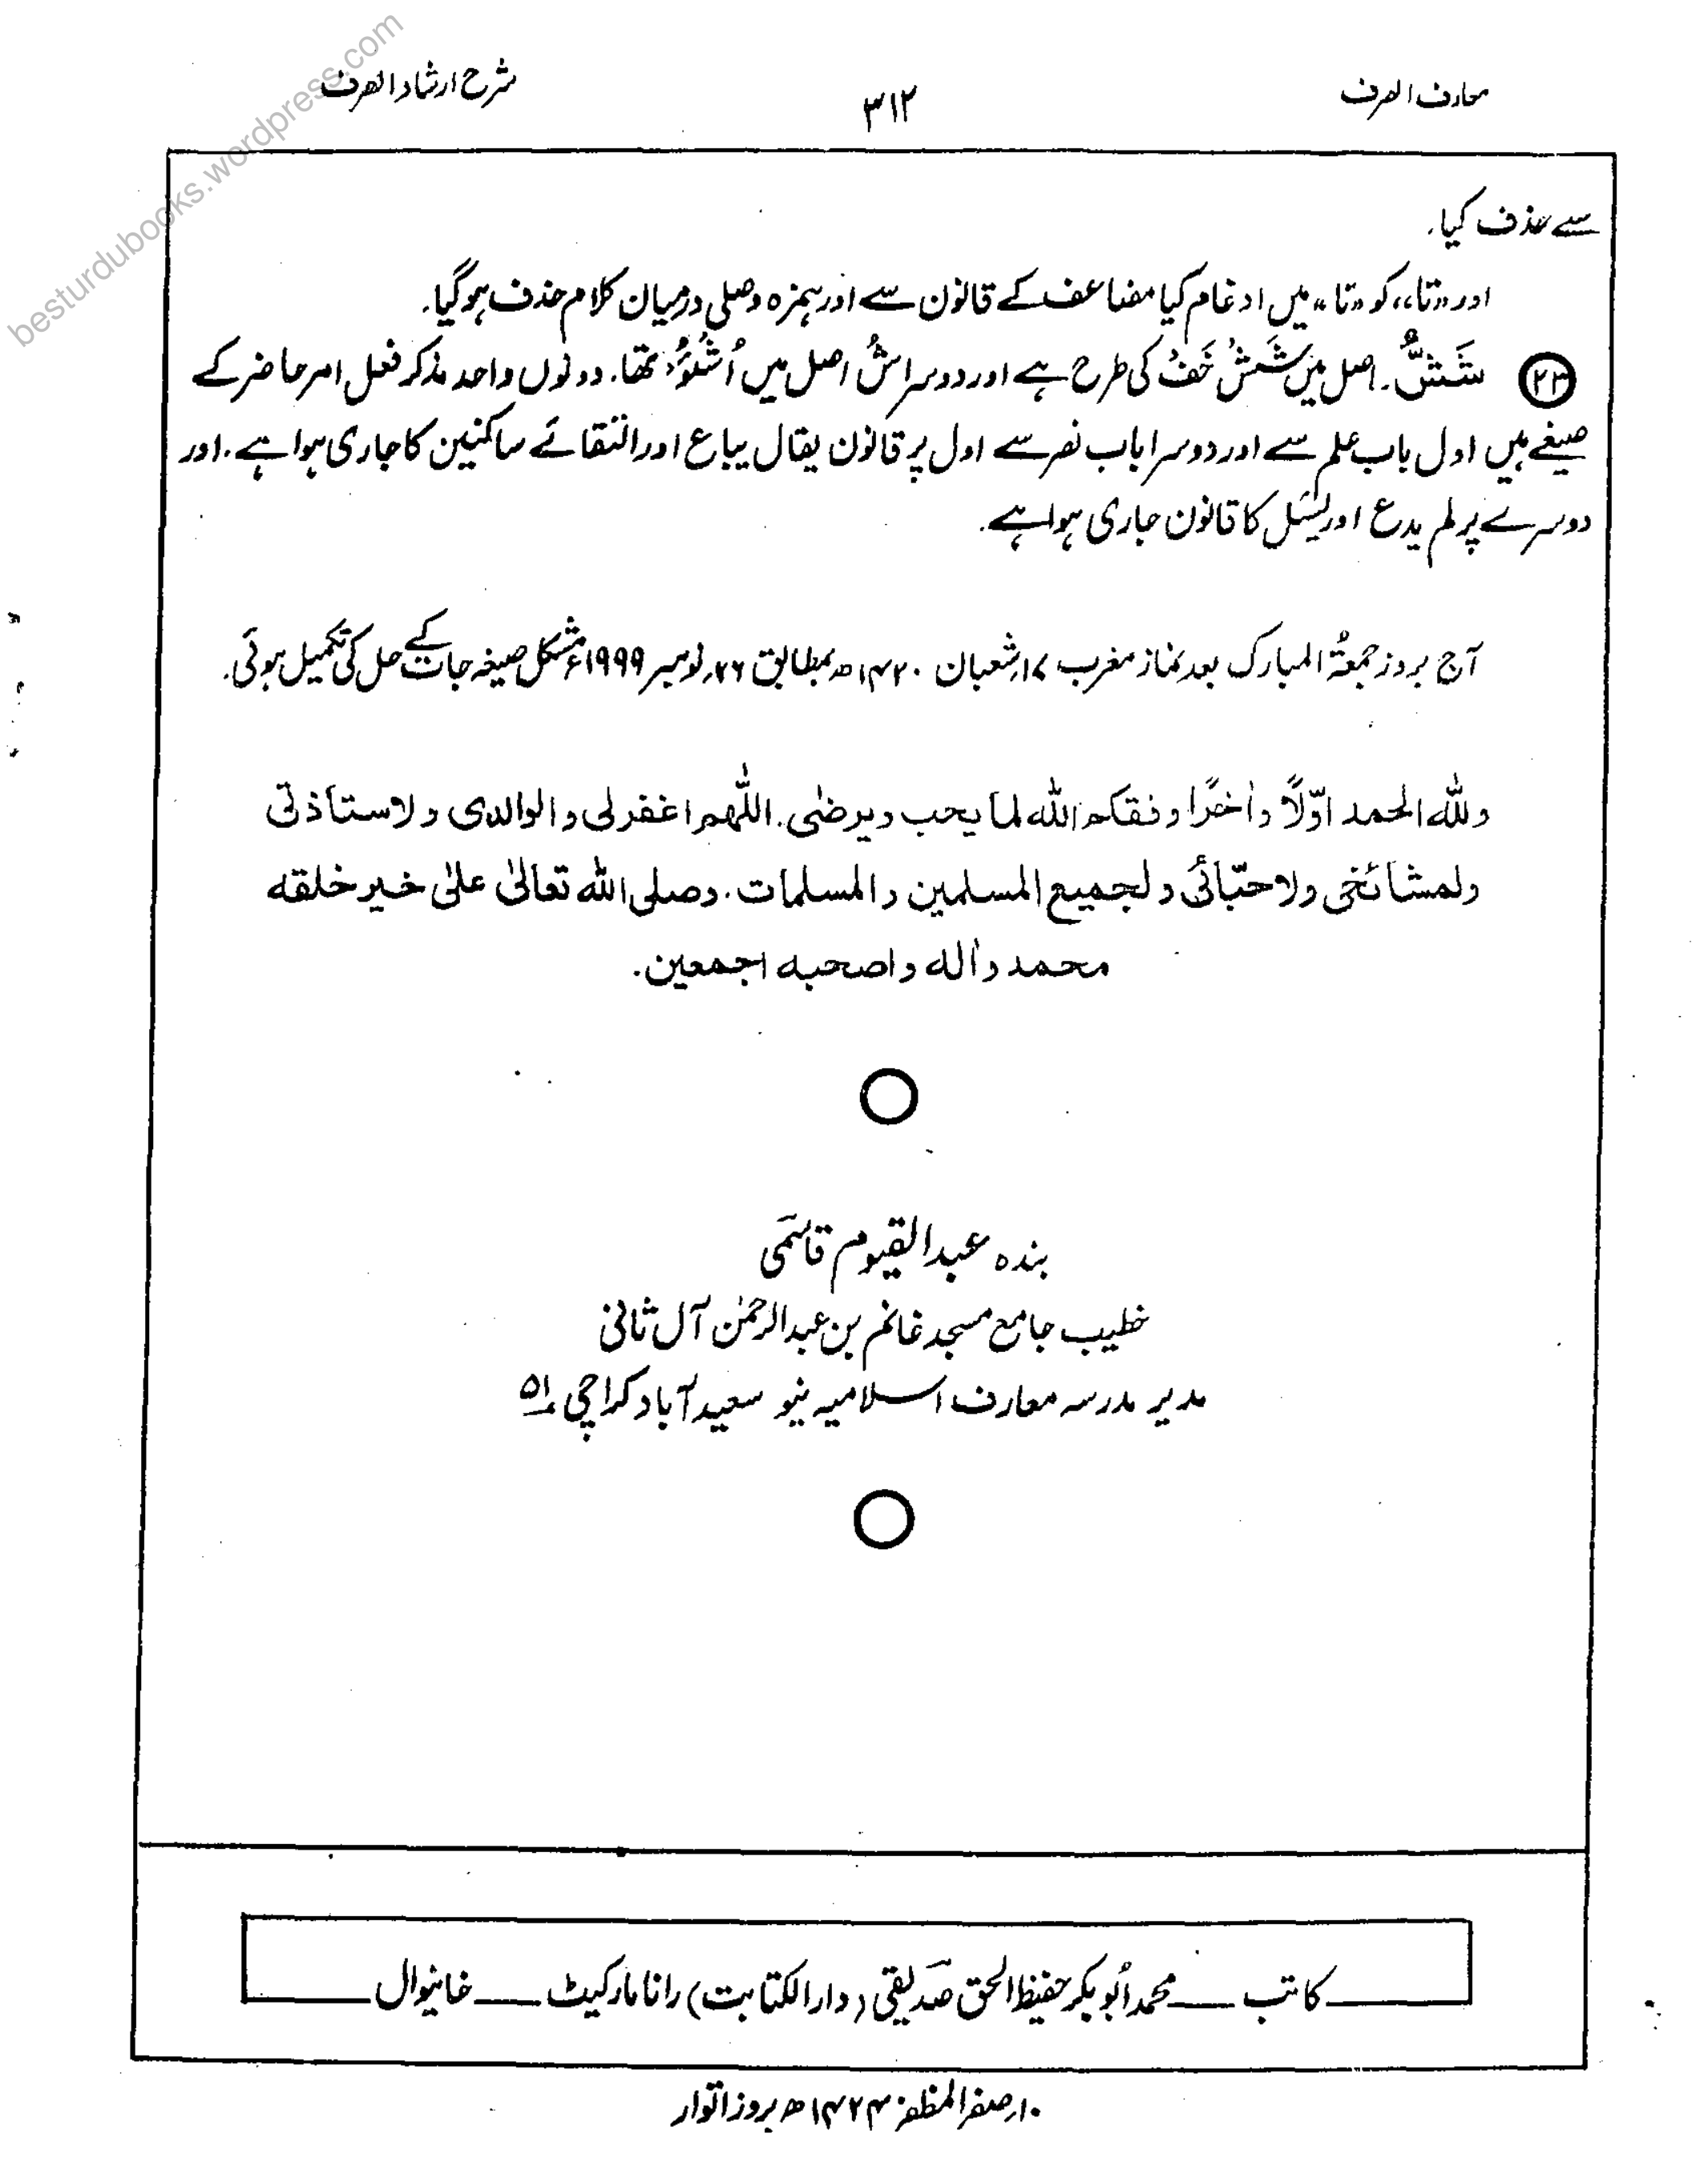 معارف الصرف
۳۱۲
شرح ارشاد الصرف
besturdubooks.wordpress.com
سے حذف کیا۔
اور «تا» کو «تا» میں ادغام کیا مضاعف کے قانون سے اور ہمزہ وصلی درمیان کلام حذف ہوگیا۔
۲۳ شَشُّ۔ اصل میں شَشُ خَفُ کی طرح ہے اور دوسرا شُ اصل میں اُشْئُوُ تھا۔ دونوں واحد مذکر فعل امر حاضر کے
صیغے ہیں اول باب علم سے اور دوسرا باب نصر سے اول پر قانون یقال یباع اور التقائے ساکنین کا جاری ہوا ہے۔ اور
دوسرے پر لم یدع اور یسئل کا قانون جاری ہوا ہے۔
آج بروز جمعۃ المبارک بعد نماز مغرب ۱۷؍شعبان ۱۴۲۰ھ بمطابق ۲۶؍نومبر ۱۹۹۹ء مشکل صیغہ جات کے حل کی تکمیل ہوئی۔
وللہ الحمد اوّلًا واٰخرًا وفقکم اللہ لما یحب ویرضٰی۔ اللّٰھم اغفرلی و الوالدی ولاستاذتی
ولمشائخی ولاحبّائی ولجمیع المسلمین والمسلمات۔ وصلی اللہ تعالیٰ علیٰ خیر خلقہ
محمد واٰلہ واصحبہ اجمعین۔
بندہ عبدالقیوم قاسمی
خطیب جامع مسجد غانم بن عبدالرحمٰن آل ثانی
مدیر مدرسہ معارف اسلامیہ نیو سعید آباد کراچی ۵۱
کاتب ــــ محمد أبوبکر حفیظ الحق صدیقی (دارالکتابت) رانا مارکیٹ ــــ خانیوال
۱۰؍صفر المظفر ۱۴۲۴ھ بروز اتوار